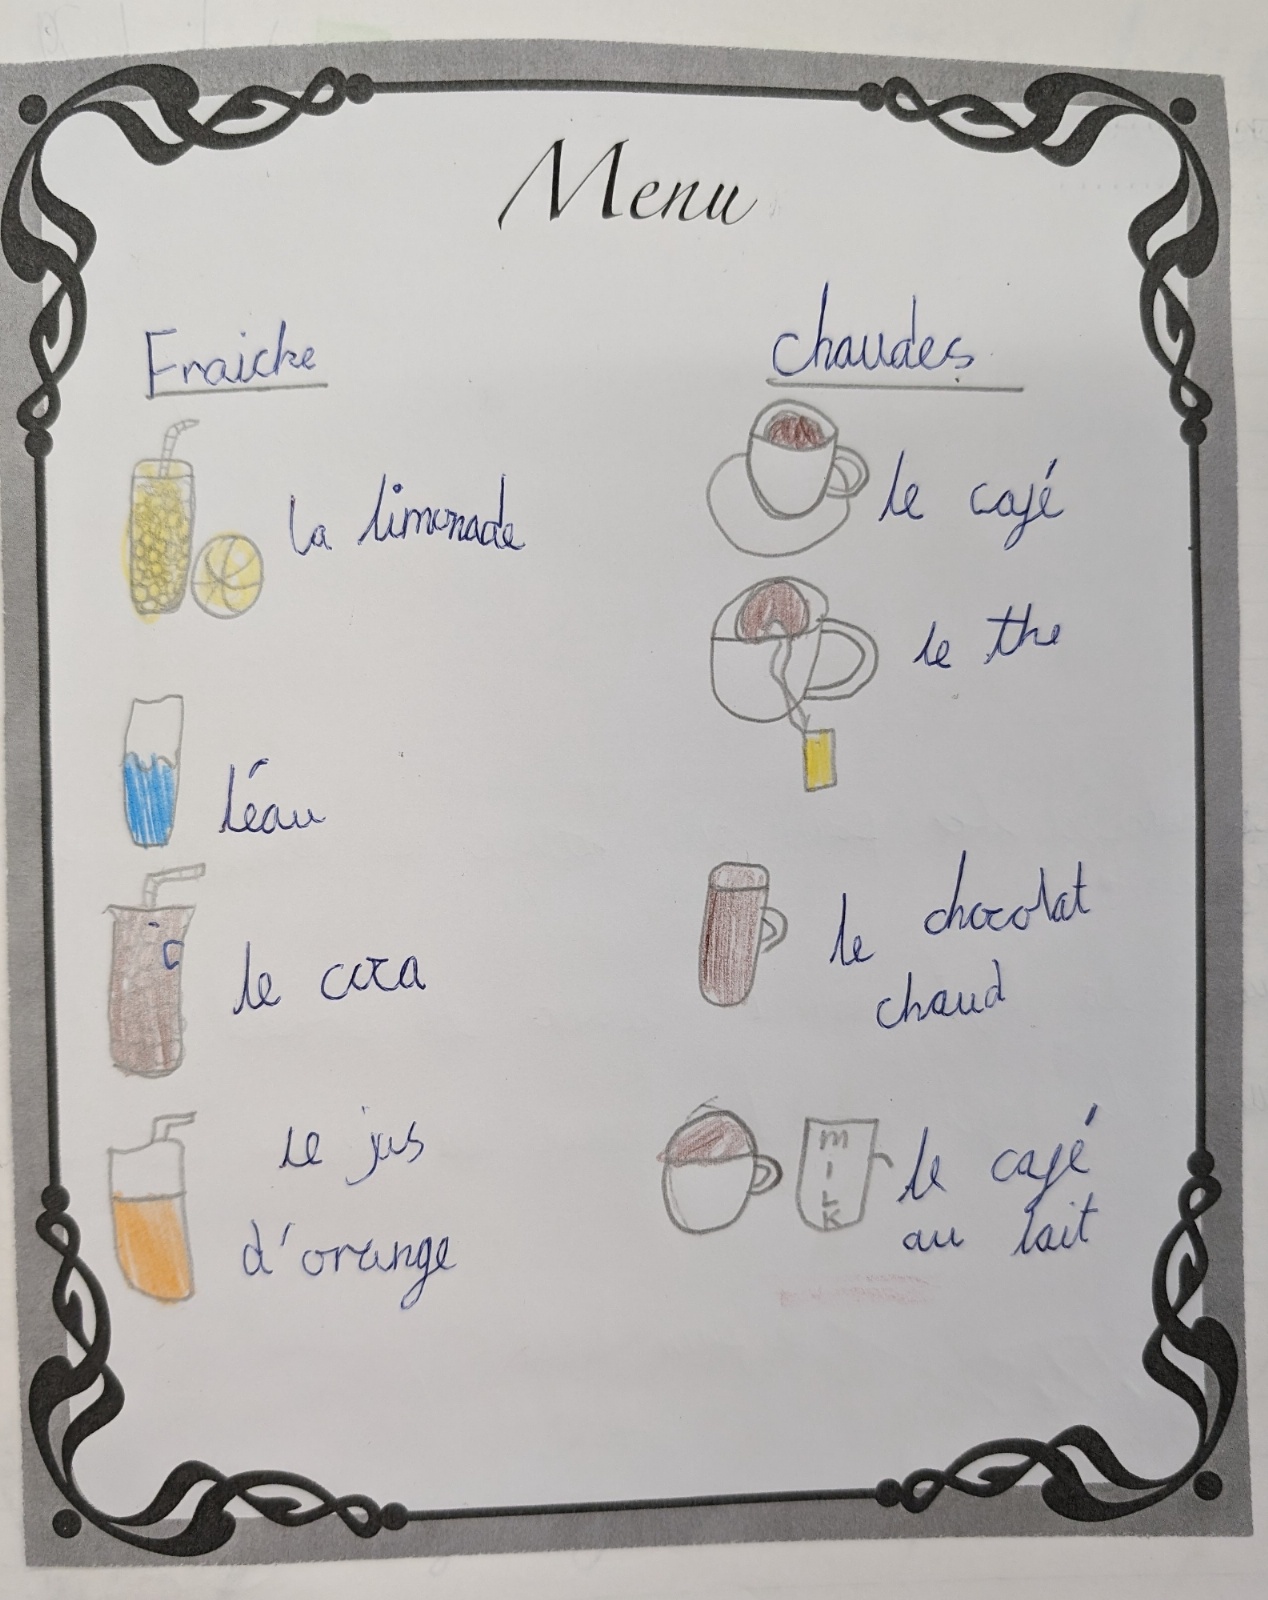 Menu
Fraiche
la limonade
l'éau
le coca
le jus
d'orange
chaudes
le café
le the
le chocolat
chaud
MILK
le café
au lait